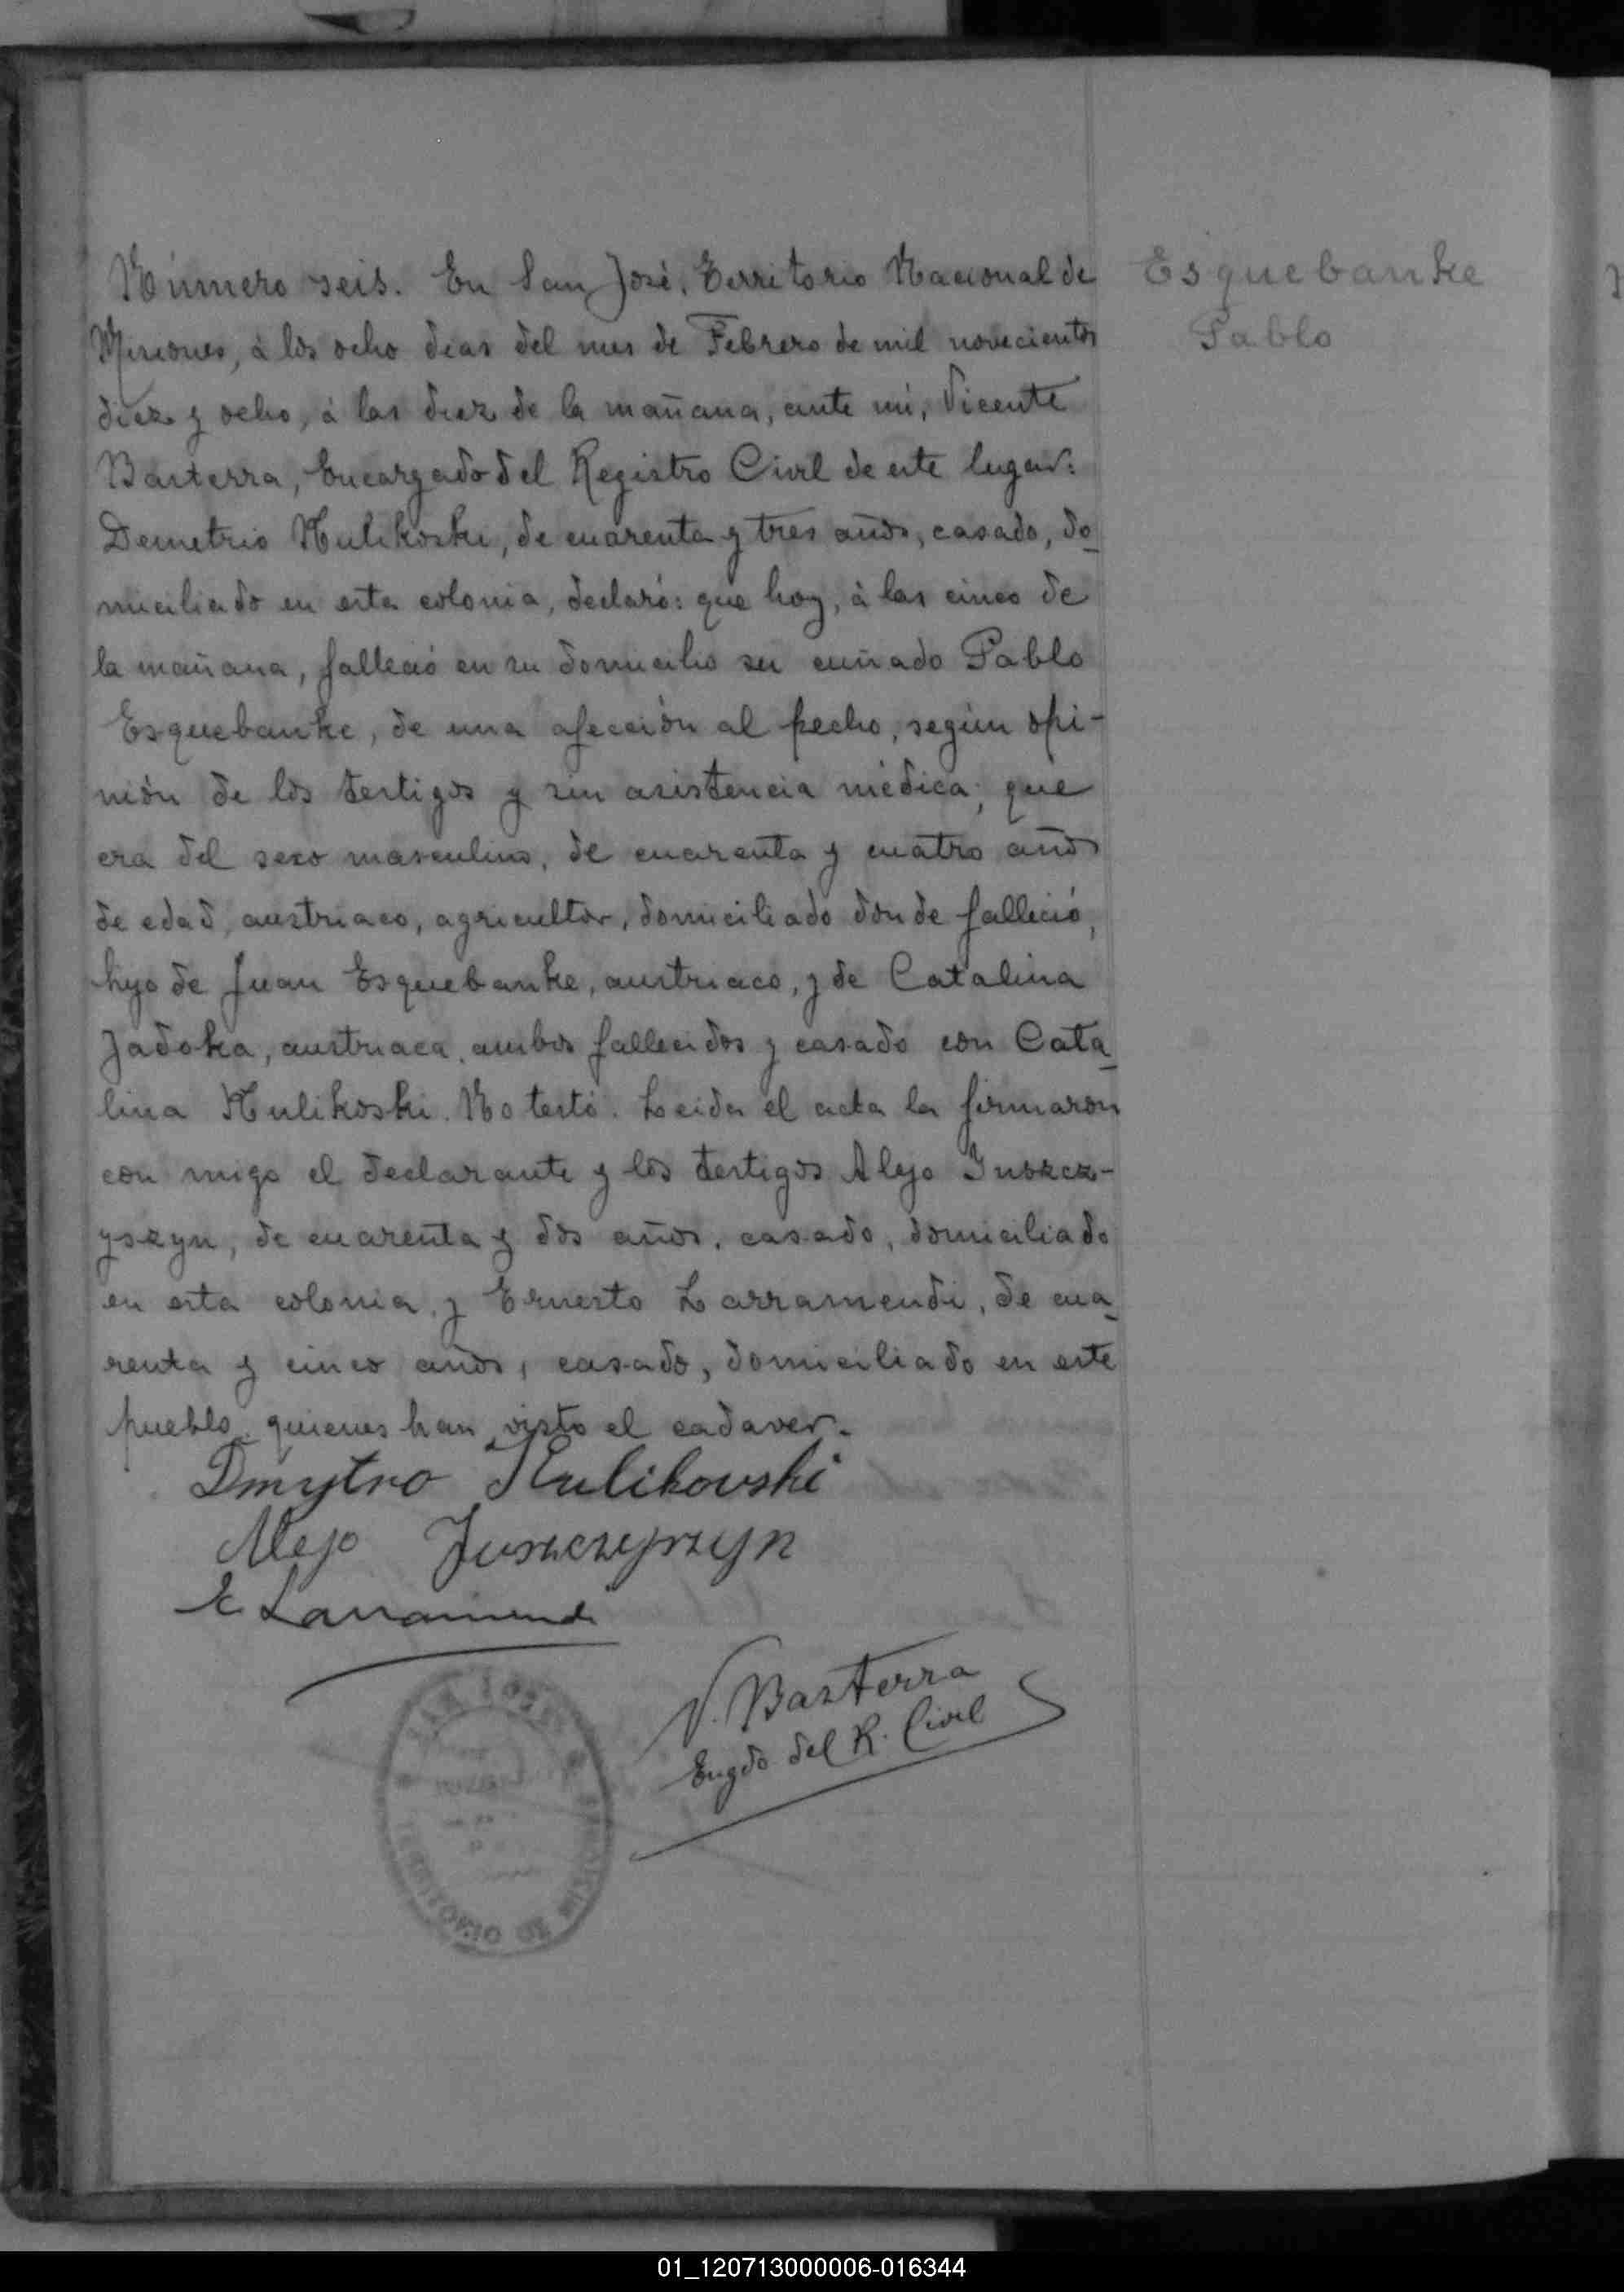 Número seis. En San José, Territorio Nacional de
Misiones, á los ocho dias del mes de Febrero de mil novecientos
diez y ocho, á las diez de la mañana, ante mi, Vicente
Basterra, Encargado del Registro Civil de este lugar:
Demetrio Kulikoski, de cuarenta y tres años, casado, do_
miciliado en esta colonia, declaró: que hoy, á las cinco de
la mañana, falleció en su domicilio su cuñado Pablo
Esquebanke, de una afección al pecho, según opi-
nión de los testigos y sin asistencia médica; que
era del sexo masculino, de cuarenta y cuatro años
de edad, austriaco, agricultor, domiciliado donde falleció,
hijo de Juan Esquebanke, austriaco, y de Catalina
Jadoka, austriaca, ambos fallecidos y casado con Cata_
lina Kulikoski. No testó. Leida el acta la firmaron
con migo el declarante y los testigos Alejo Juszcz-
yszyn, de cuarenta y dos años, casado, domiciliado
en esta colonia, y Ernesto Larramendi, de cua_
renta y cinco años, casado, domiciliado en este
pueblo, quienes han visto el cadaver.
Esquebanke
Pablo
Dmytro Kulikovski
Alejo Juszczyszyn
E Larramendi
V. Basterra
Engdo del R. Civil
SAN JOSE
TERRITORIO DE MISIONES
01_120713000006-016344